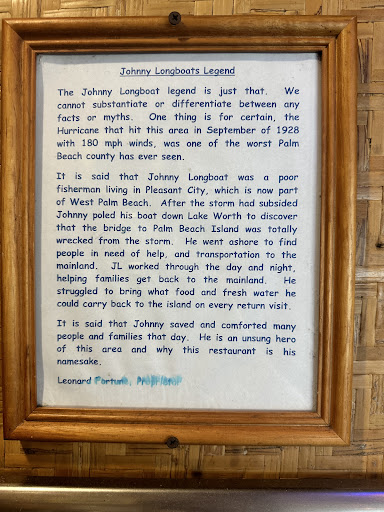 Johnny Longboats Legend
The Johnny Longboat legend is just that. We
cannot substantiate or differentiate between any
facts or myths. One thing is for certain, the
Hurricane that hit this area in September of 1928
with 180 mph winds, was one of the worst Palm
Beach county has ever seen.
It is said that Johnny Longboat was a poor
fisherman living in Pleasant City, which is now part
of West Palm Beach. After the storm had subsided
Johnny poled his boat down Lake Worth to discover
that the bridge to Palm Beach Island was totally
wrecked from the storm. He went ashore to find
people in need of help, and transportation to the
mainland. JL worked through the day and night,
helping families get back to the mainland. He
struggled to bring what food and fresh water he
could carry back to the island on every return visit.
It is said that Johnny saved and comforted many
people and families that day. He is an unsung hero
of this area and why this restaurant is his
namesake.
Leonard Fortune,